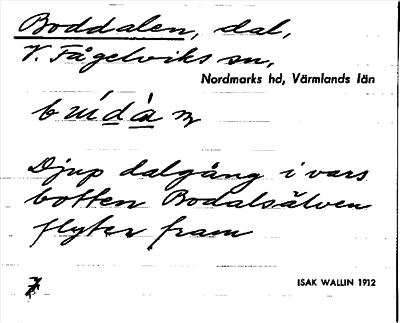 Boddalen, dal,
V. Fågelviks sn,
Nordmarks hd, Värmlands län
Djup dalgång i vars
botten Bodalsälven
flyter fram
ISAK WALLIN 1912